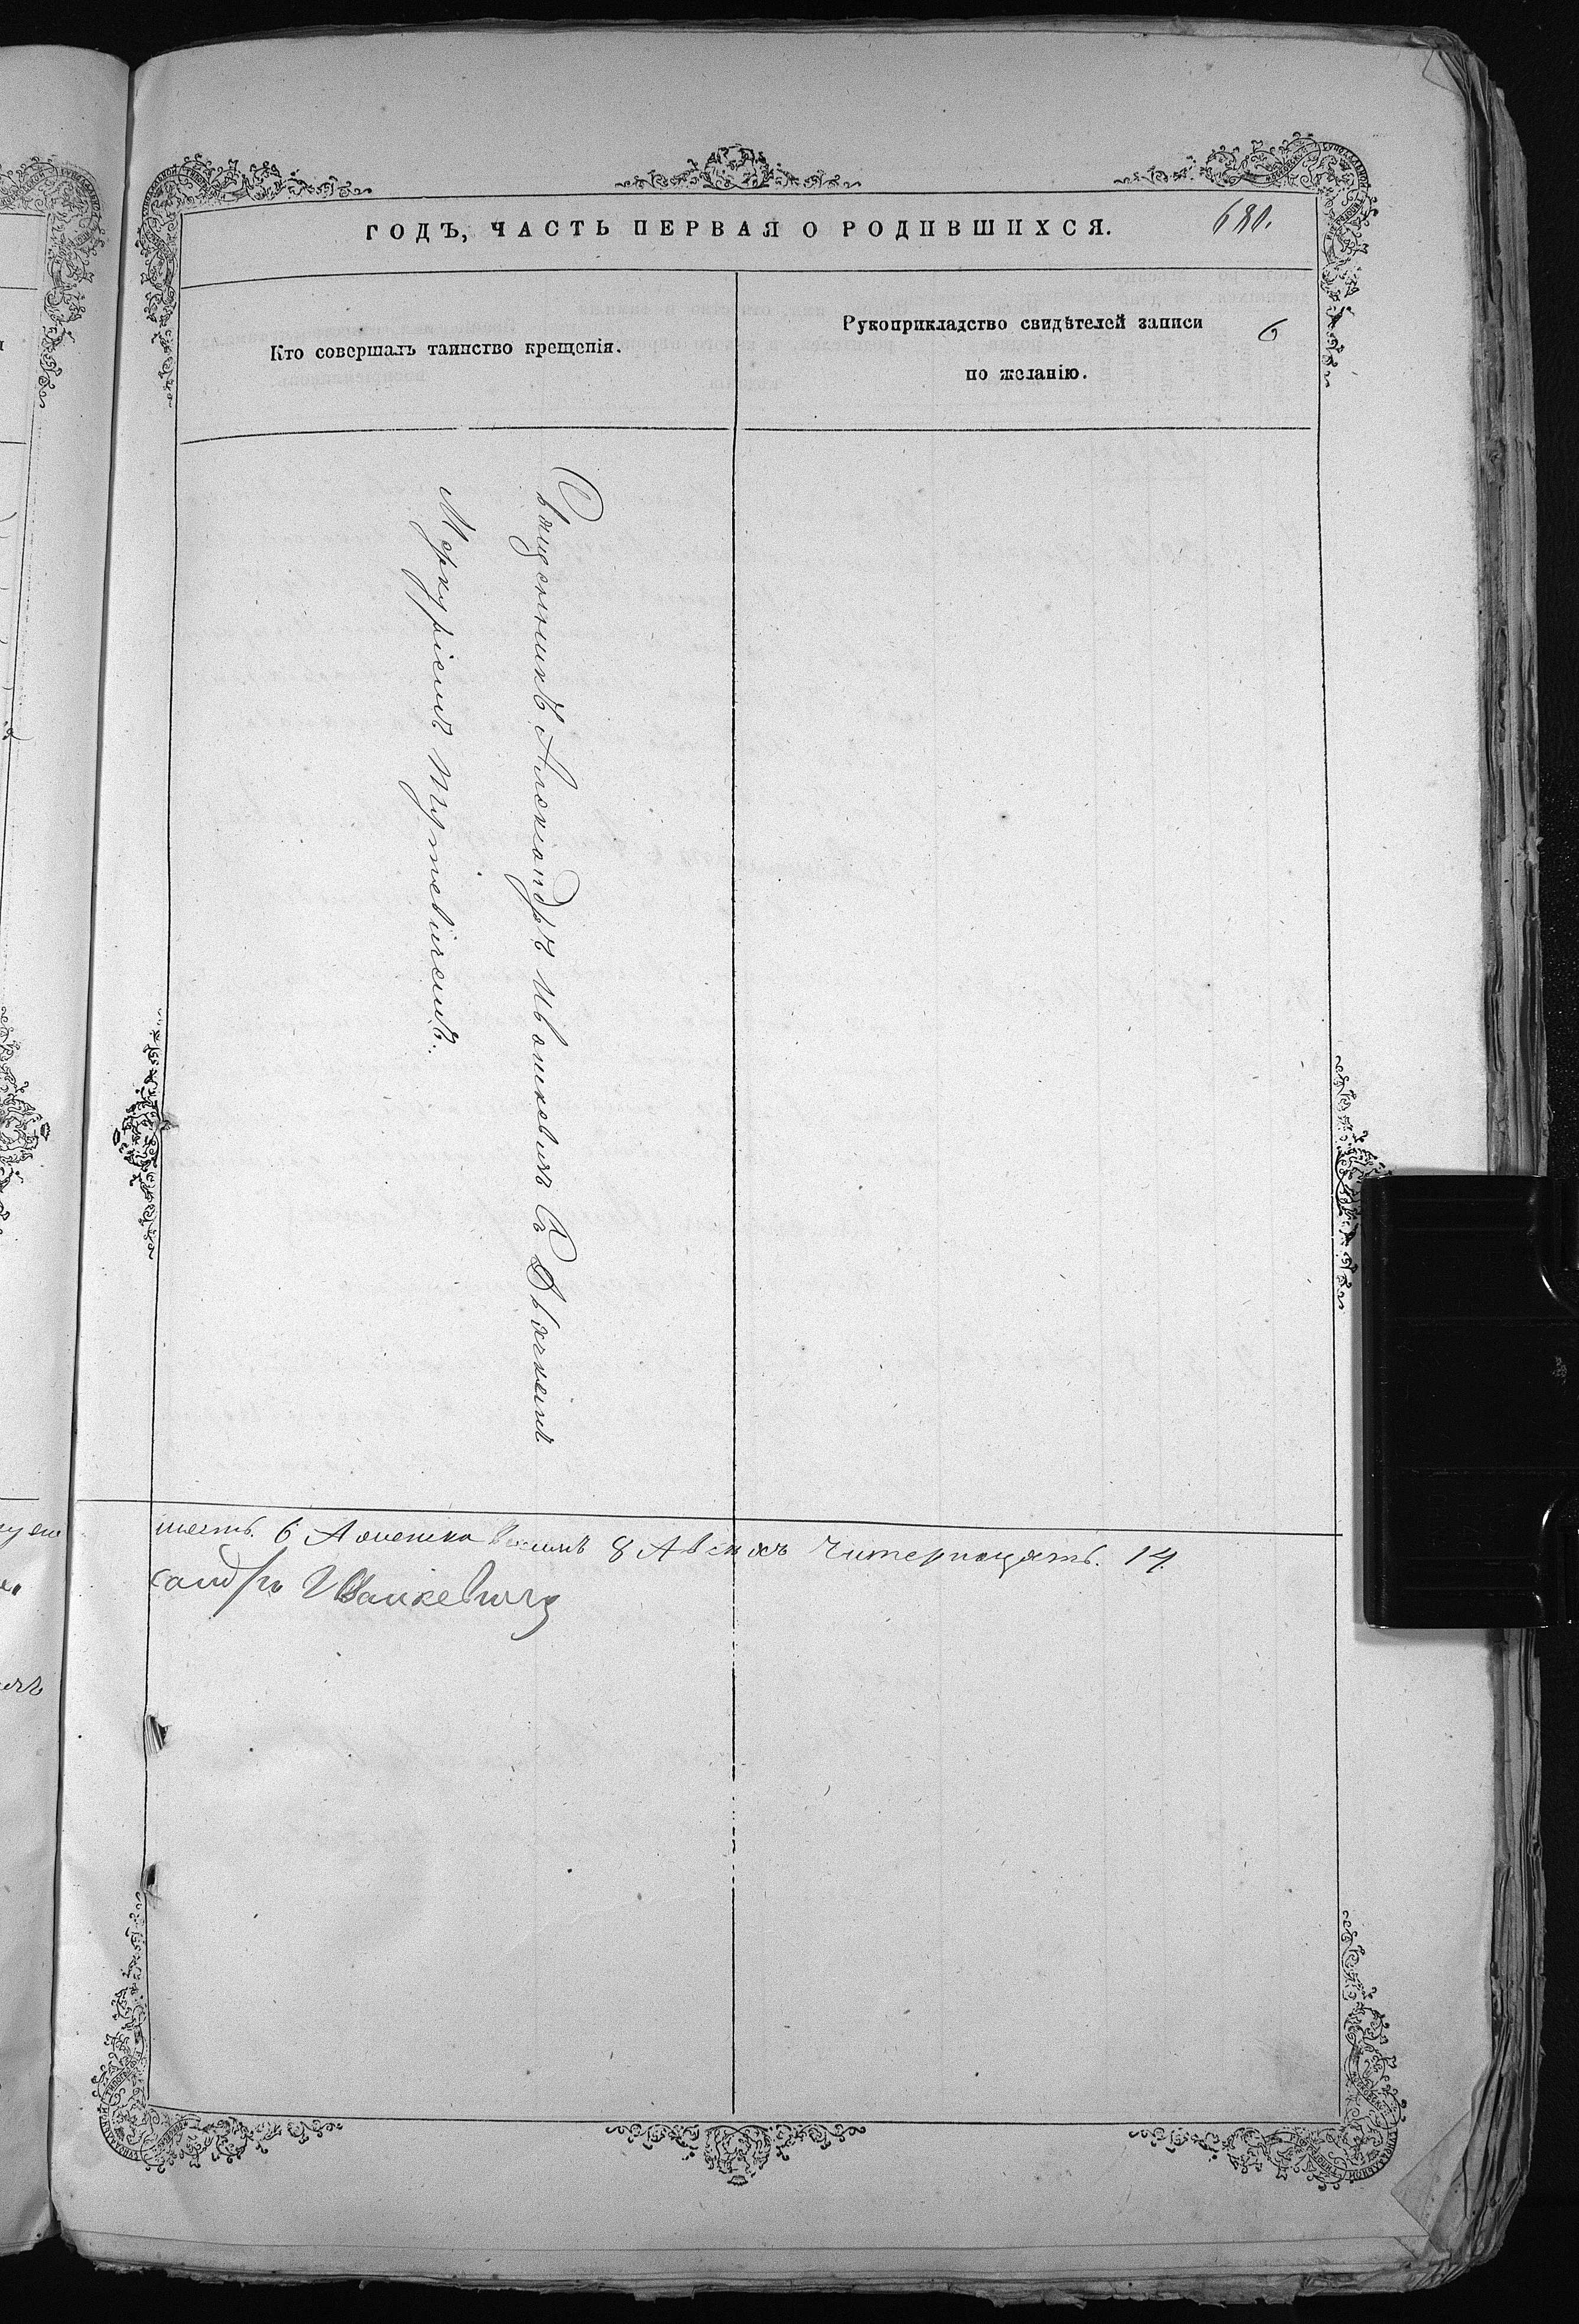 ГОДЪ, ЧАСТЬ ПЕРВАЯ О РОДИВШИХСЯ.
680.
Кто совершалъ таинство крещенія.
Рукоприкладство свидѣтелей записи
по желанію.
6
Священникъ Александръ Ивашкевичъ Съ Дьячкомъ
Меркуріемъ Тутевичемъ.
шесть. 6 А женска восемь 8 А всѣхъ Читернацать. 14
сандръ Ивашкевичъ